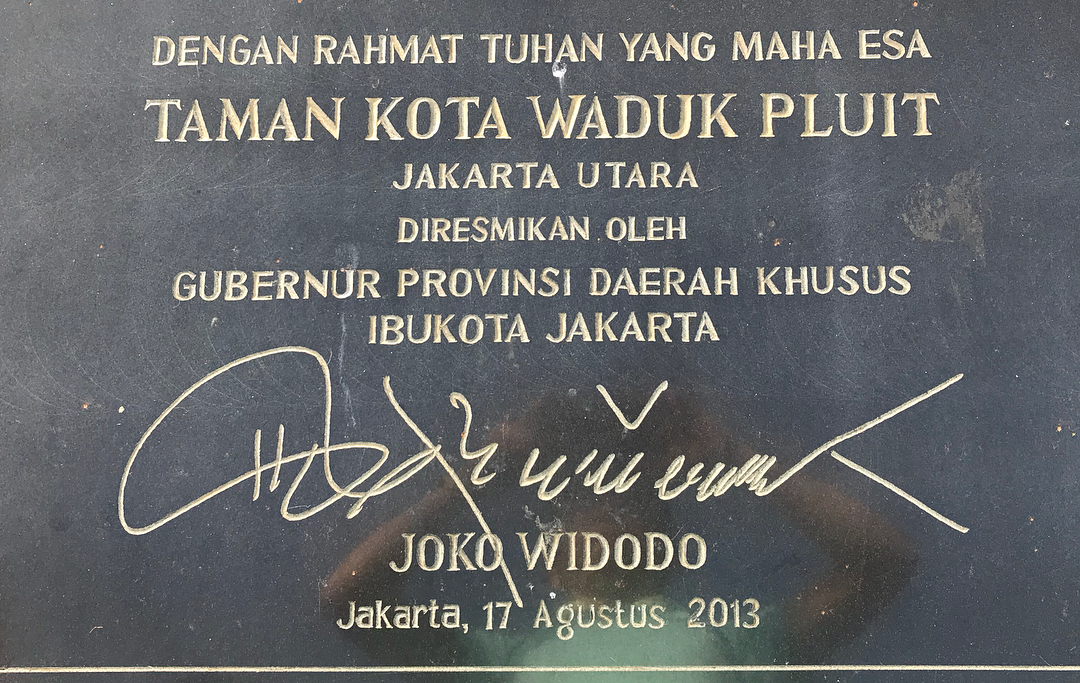 DENGAN RAHMAT TUHAN YANG MAHA ESA
TAMAN KOTA WADUK PLUIT
JAKARTA UTARA
DIRESMIKAN OLEH
GUBERNUR PROVINSI DAERAH KHUSUS
IBUKOTA JAKARTA
JOKO WIDODO
Jakarta, 17 Agustus 2013